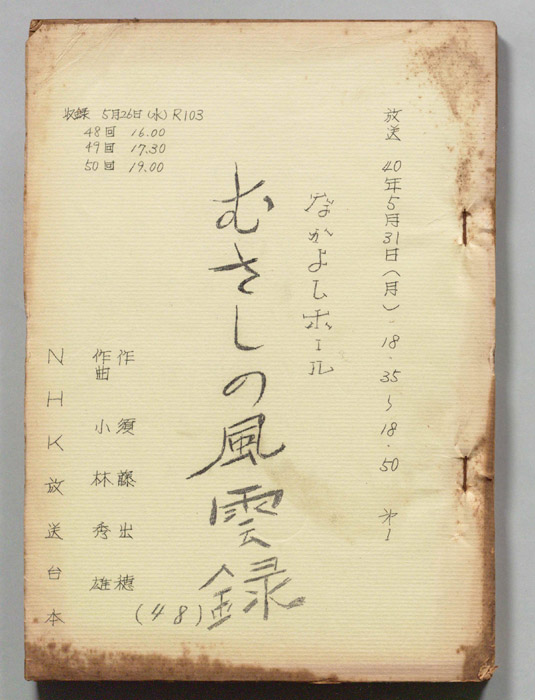 放送 40年5月31日(月) 18.35~18.50 第1
なかよしホール
むさしの風雲録
(48)
収録 5月26日(水) R103
48回 16.00
49回 17.30
50回 19.00
作 須藤出穂
作曲 小林秀雄
NHK放送台本